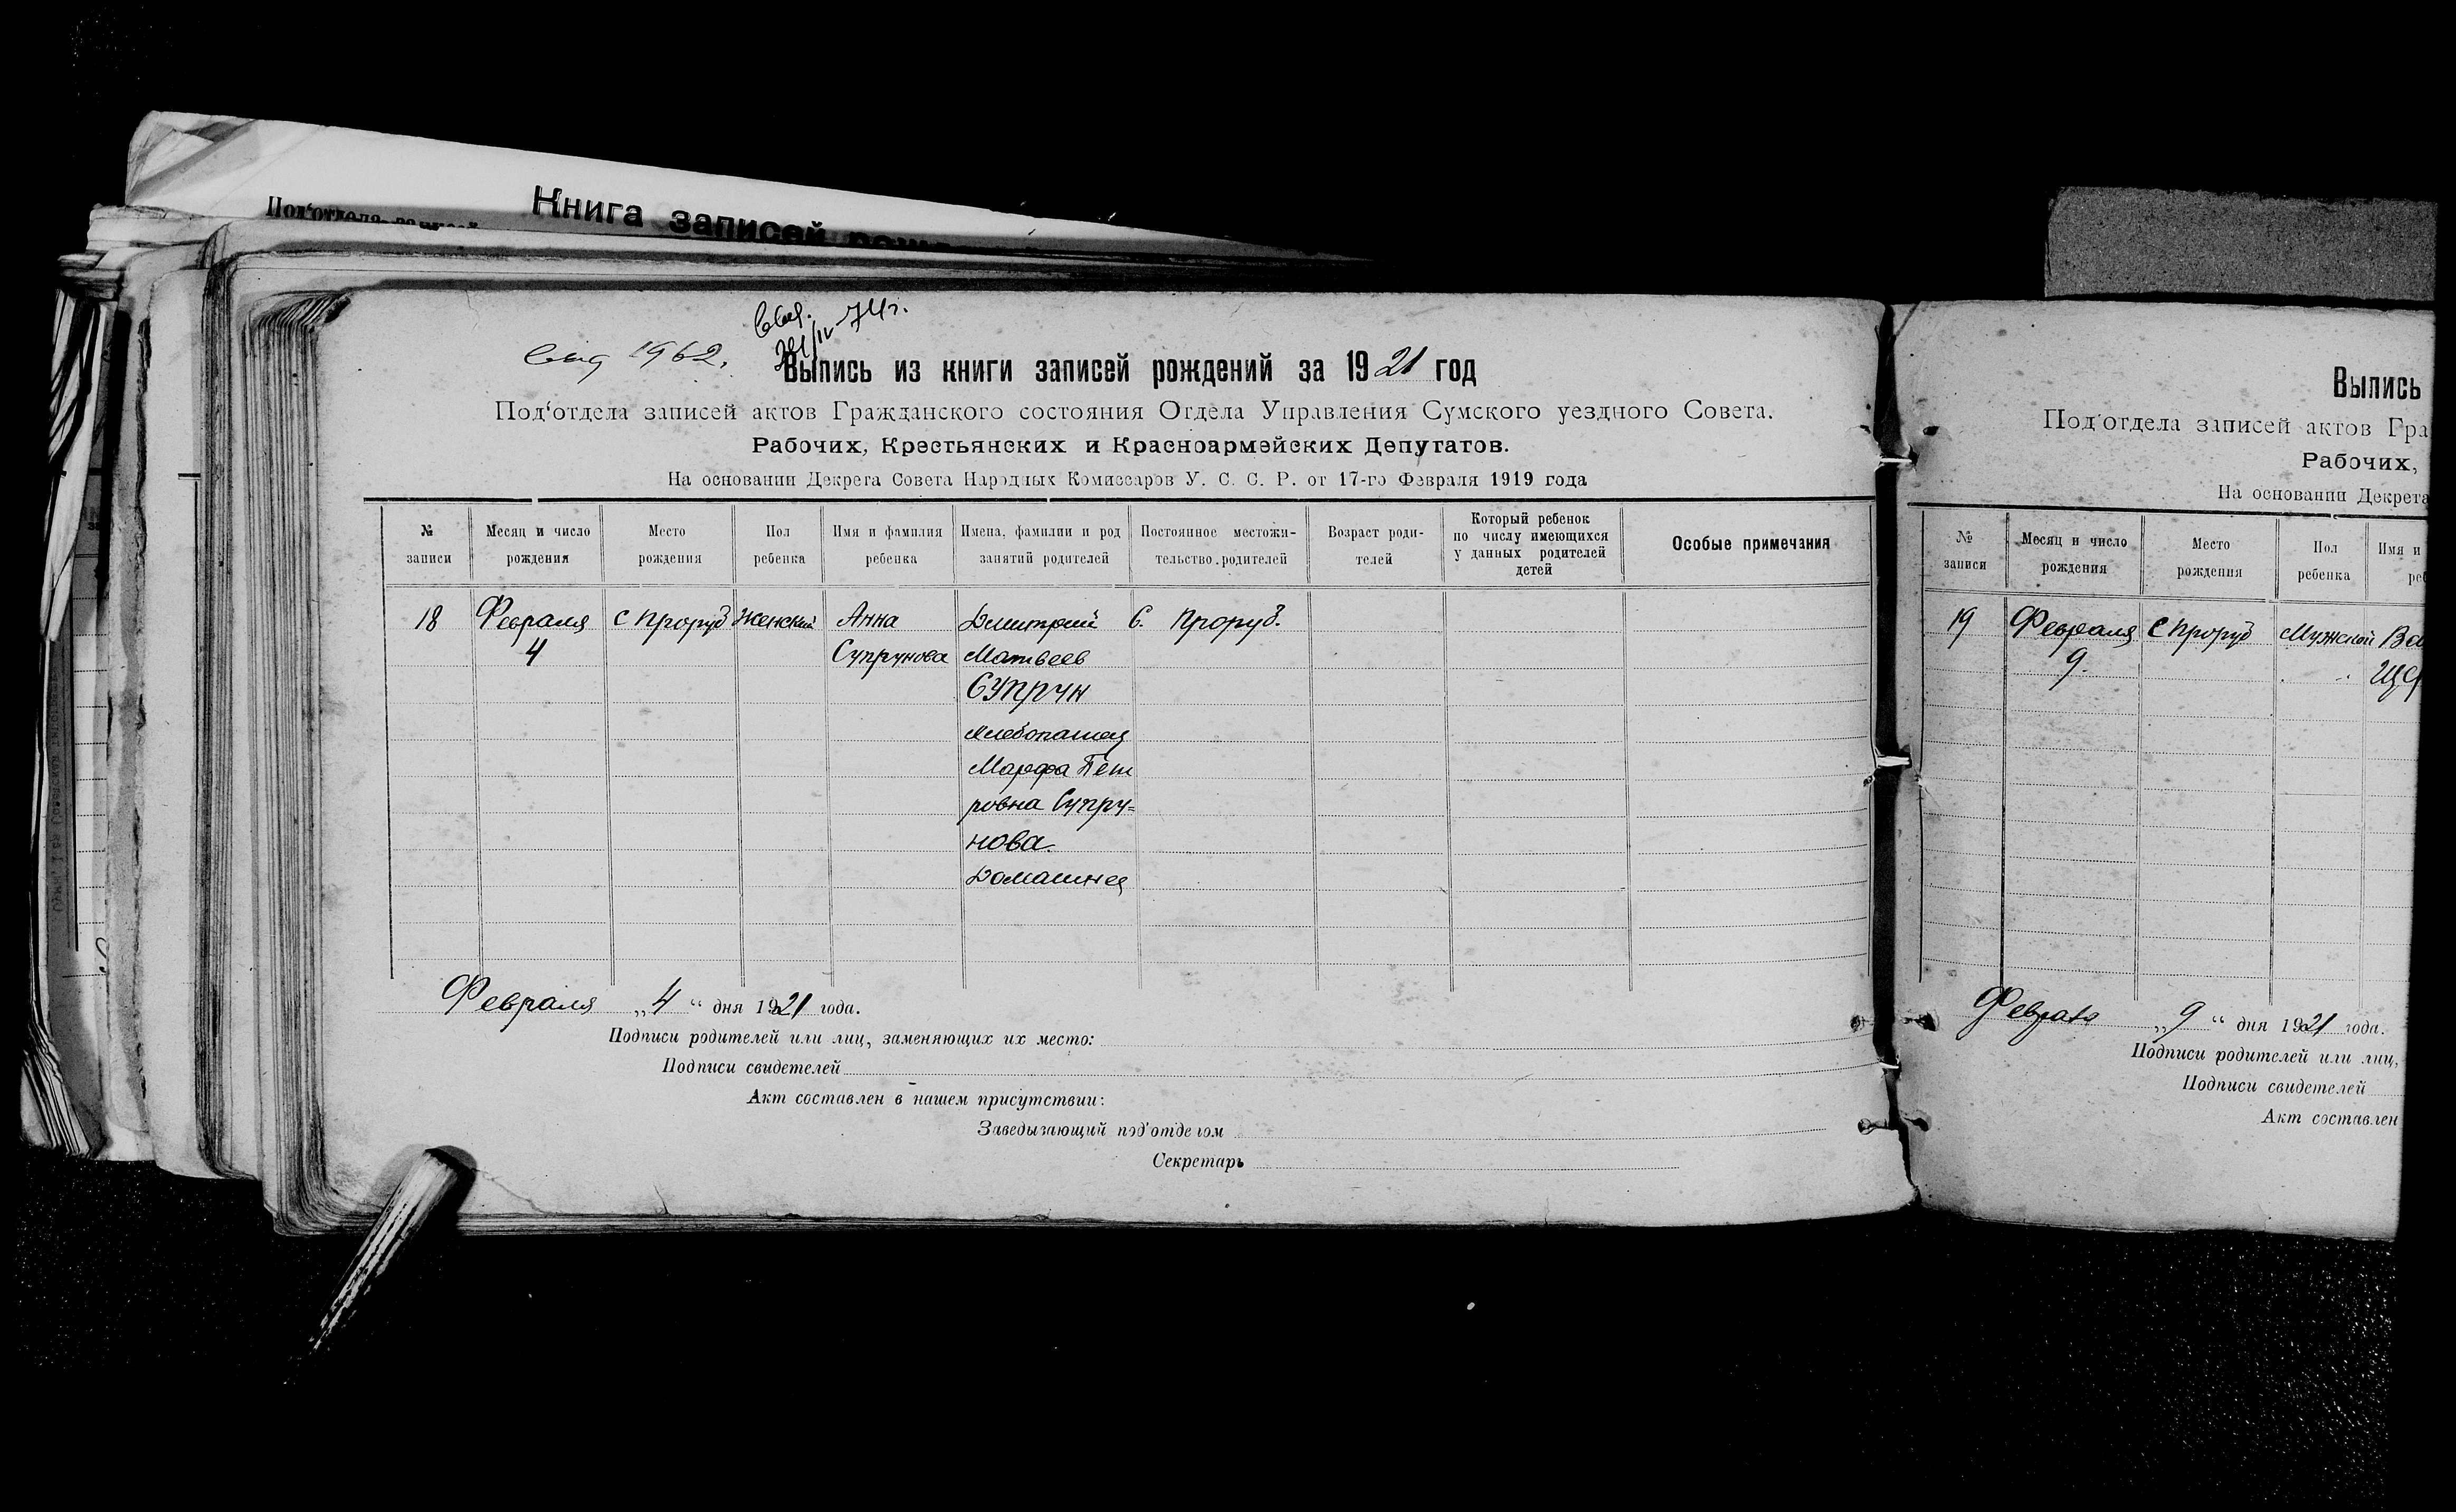 Под‘отдела записей
Книга записей рожд
Свид. 74г.
1962.
Выпись из книги записей рождений за 1921 год
Под‘отдела записей актов Гражданского состояния Отдела Управления Сумского уездного Совета.
Рабочих, Крестьянских и Красноармейских Депутатов.
На основании Декрета Совета Народных Комиссаров У. С. С. Р. от 17-го Февраля 1919 года
№ записи
Месяц и число рождения
Место рождения
Пол ребенка
Имя и фамилия ребенка
Имена, фамилии и род занятий родителей
Постоянное местожительство родителей
Возраст родителей
Который ребенок по числу имеющихся у данных родителей детей
Особые примечания
18 Февраля С Проруб Женский Анна Дмитрий С. Проруб.
4 Супрунова Матвеев
Супрун
хлебопашец
Марфа Пет
ровна Супру=
нова.
Домашнея
Февраля „4“ дня 1921 года.
Подписи родителей или лиц, заменяющих их место:
Подписи свидетелей
Акт составлен в нашем присутствии:
Заведывающий под‘отделом
Секретарь
Выпись
Под‘отдела записей актов Гра
Рабочих,
На основании Декрета
№ записи
Месяц и число рождения
Место рождения
Пол ребенка
Имя и
реб
19 Февраля С Проруб Мужской Ва
9.
Февраля „9“ дня 1921 года.
Подписи родителей или лиц,
Подписи свидетелей
Акт составлен